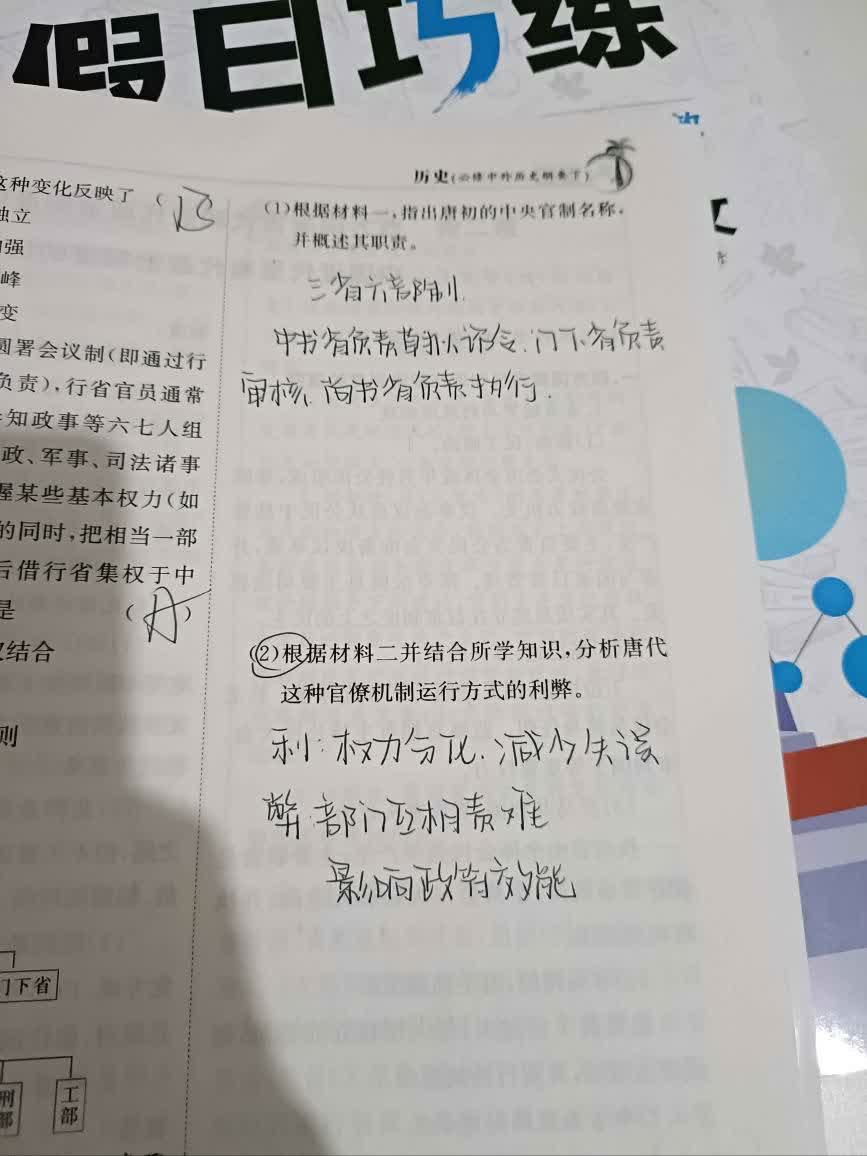 假日巧练
历史(必修中外历史纲要下)
这种变化反映了(B
独立
加强
峰
变
圆署会议制(即通过行
负责),行省官员通常
知政事等六七人组
政、军事、司法诸事
握某些基本权力(如
的同时,把相当一部
后借行省集权于中
是(A)
结合
则
门下省
刑部
工部
(1)根据材料一,指出唐初的中央官制名称,
并概述其职责。
三省六部制.
中书省负责草拟诏令.门下省负责
审核、尚书省负责执行.
(2)根据材料二并结合所学知识,分析唐代
这种官僚机制运行方式的利弊。
利:权力分化.减少失误
弊:部门互相责难
影响政府效能